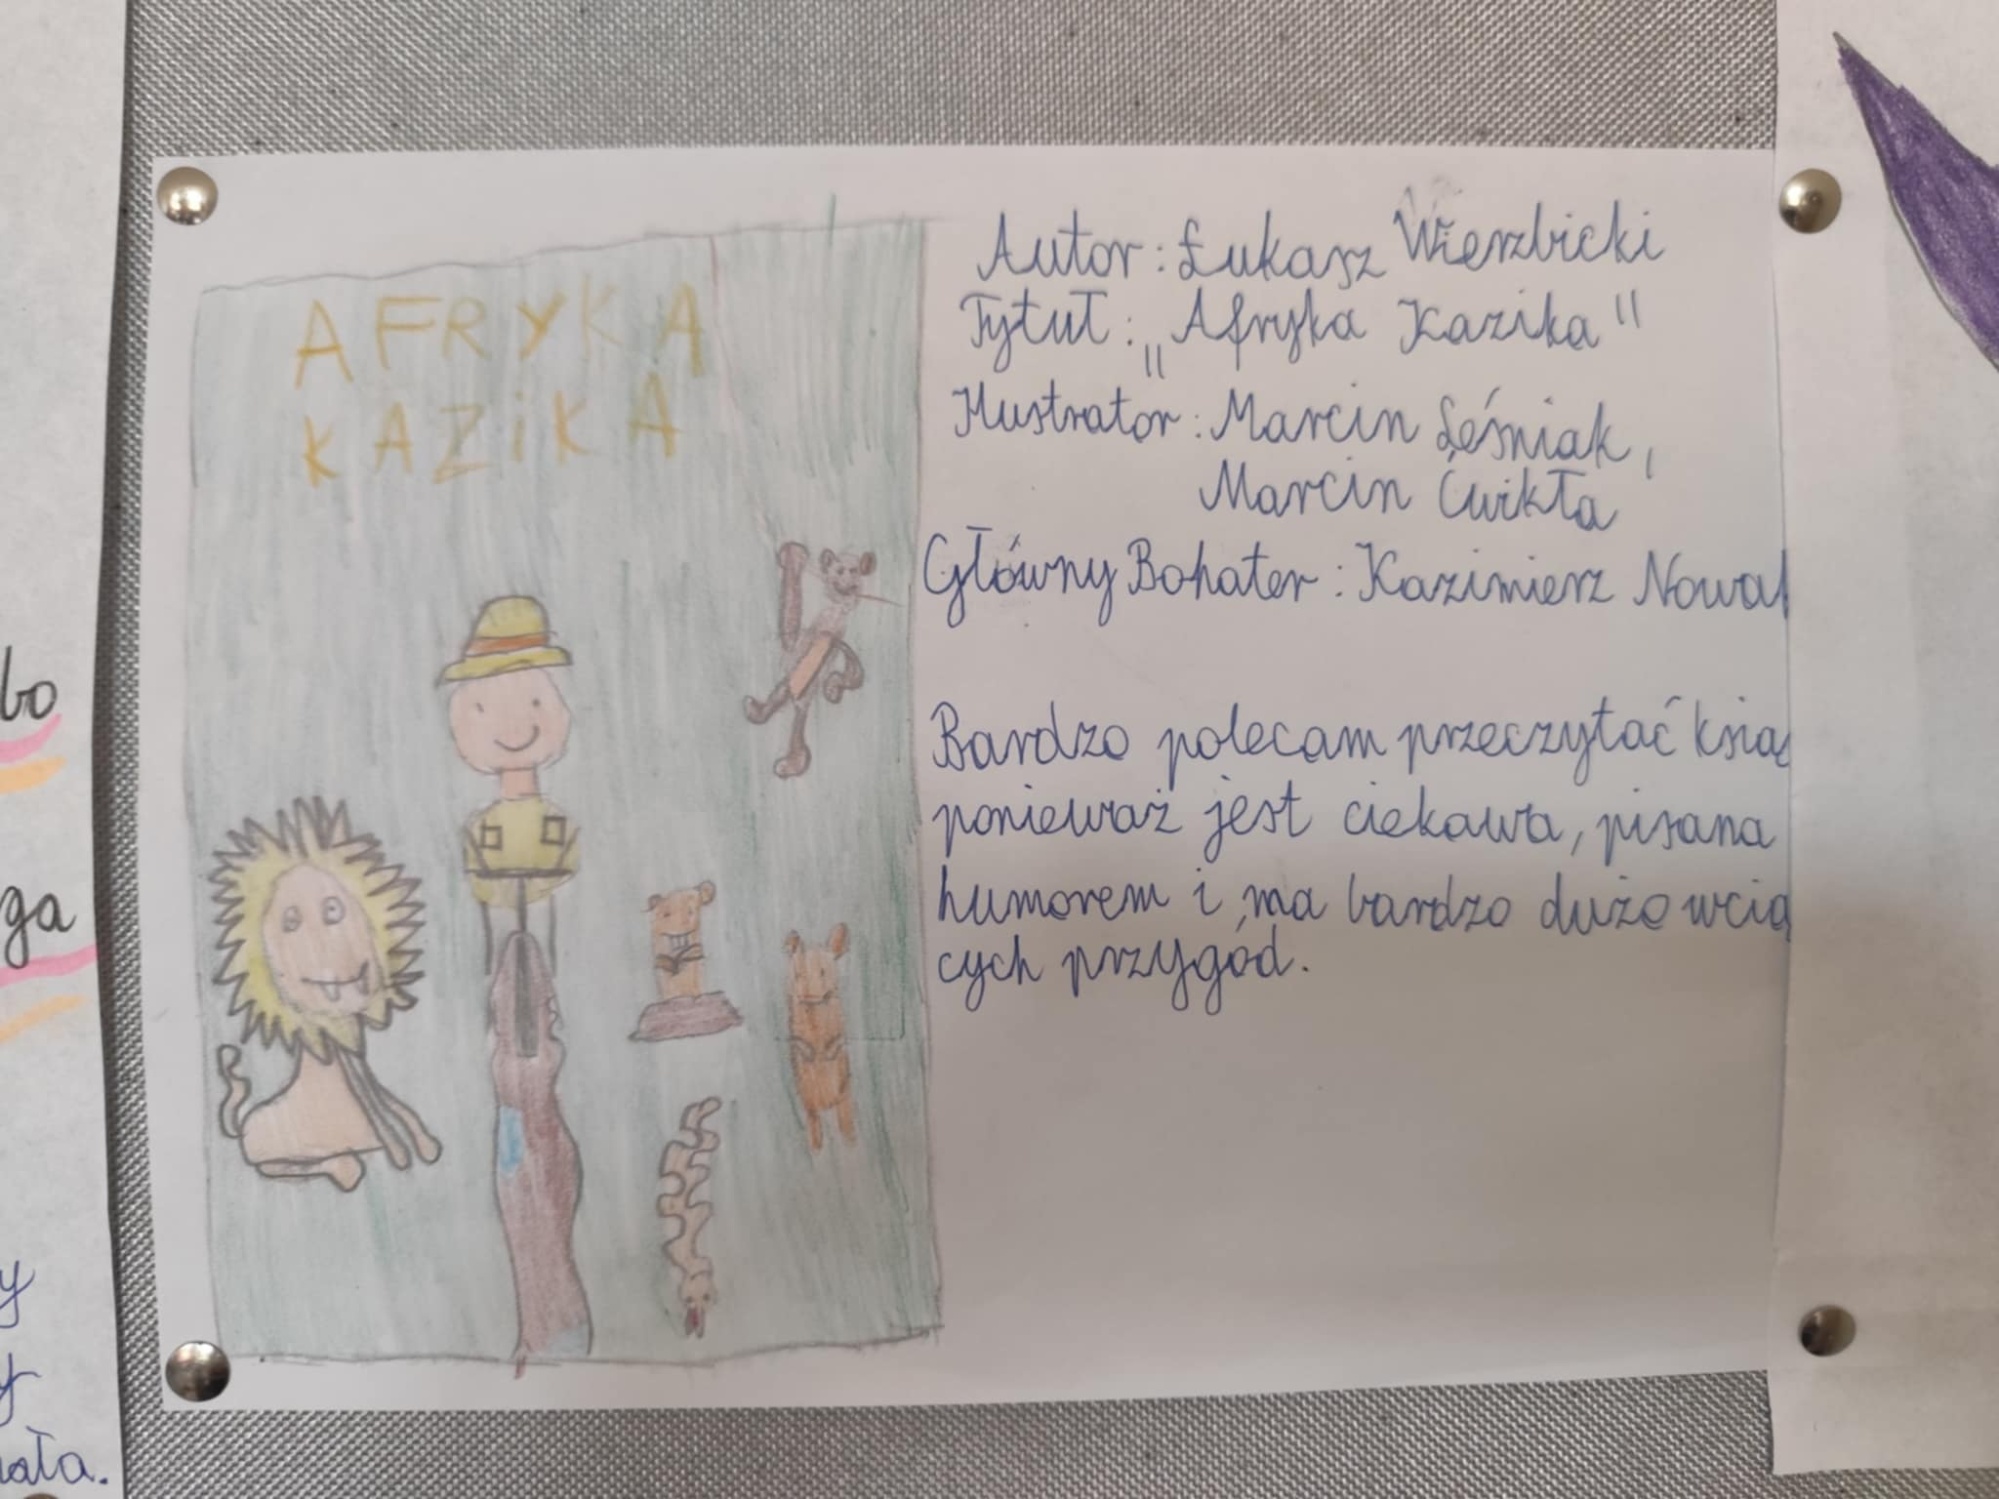 AFRYKA
KAZiKA
Autor: Łukasz Wierzbicki
Tytuł: „Afryka Kazika"
Ilustrator: Marcin Leśniak,
Marcin Ćwikła
Główny Bohater: Kazimierz Nowa
Bardzo polecam przeczytać ksią
ponieważ jest ciekawa, pisana
humorem i ma bardzo dużo wcią
cych przygód.
bo
ga
y
y
ała.